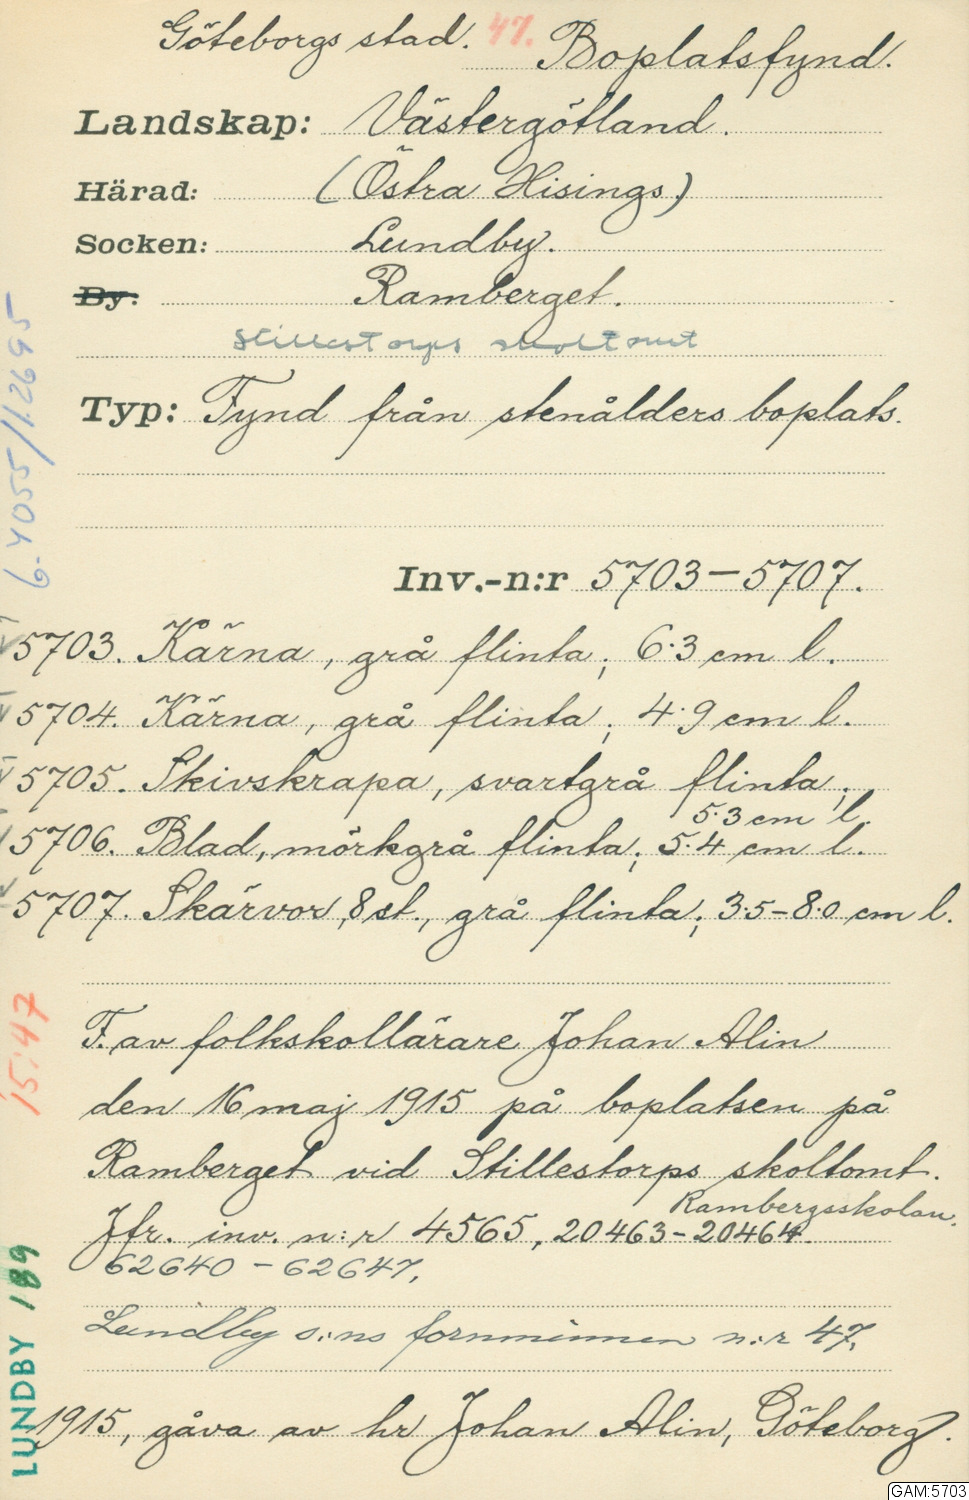 Göteborgs stad. 47. Boplatsfynd.
Landskap: Västergötland.
Härad: (Östra Hisings)
Socken: Lundby.
By: Ramberget.
Stillestorps skoltomt
Typ: Fynd från stenålders boplats.
Inv.-n:r 5703–5707.
5703. Kärna, grå flinta; 6.3 cm l.
5704. Kärna, grå flinta; 4.9 cm l.
5705. Skivskrapa, svartgrå flinta;
5.3 cm l.
5706. Blad, mörkgrå flinta; 5.4 cm l.
5707. Skärvor, 8 st., grå flinta; 3.5–8.0 cm l.
F. av folkskollärare Johan Alin
den 16 maj 1915 på boplatsen på
Ramberget vid Stillestorps skoltomt.
Rambergsskolan.
Jfr. inv. n:r 4565, 20463–20464.
62640 – 62647.
Lundby s:ns fornminnen n:r 47.
1915, gåva av hr Johan Alin, Göteborg.
6-4055/12695
15:47
LUNDBY 189
GAM:5703